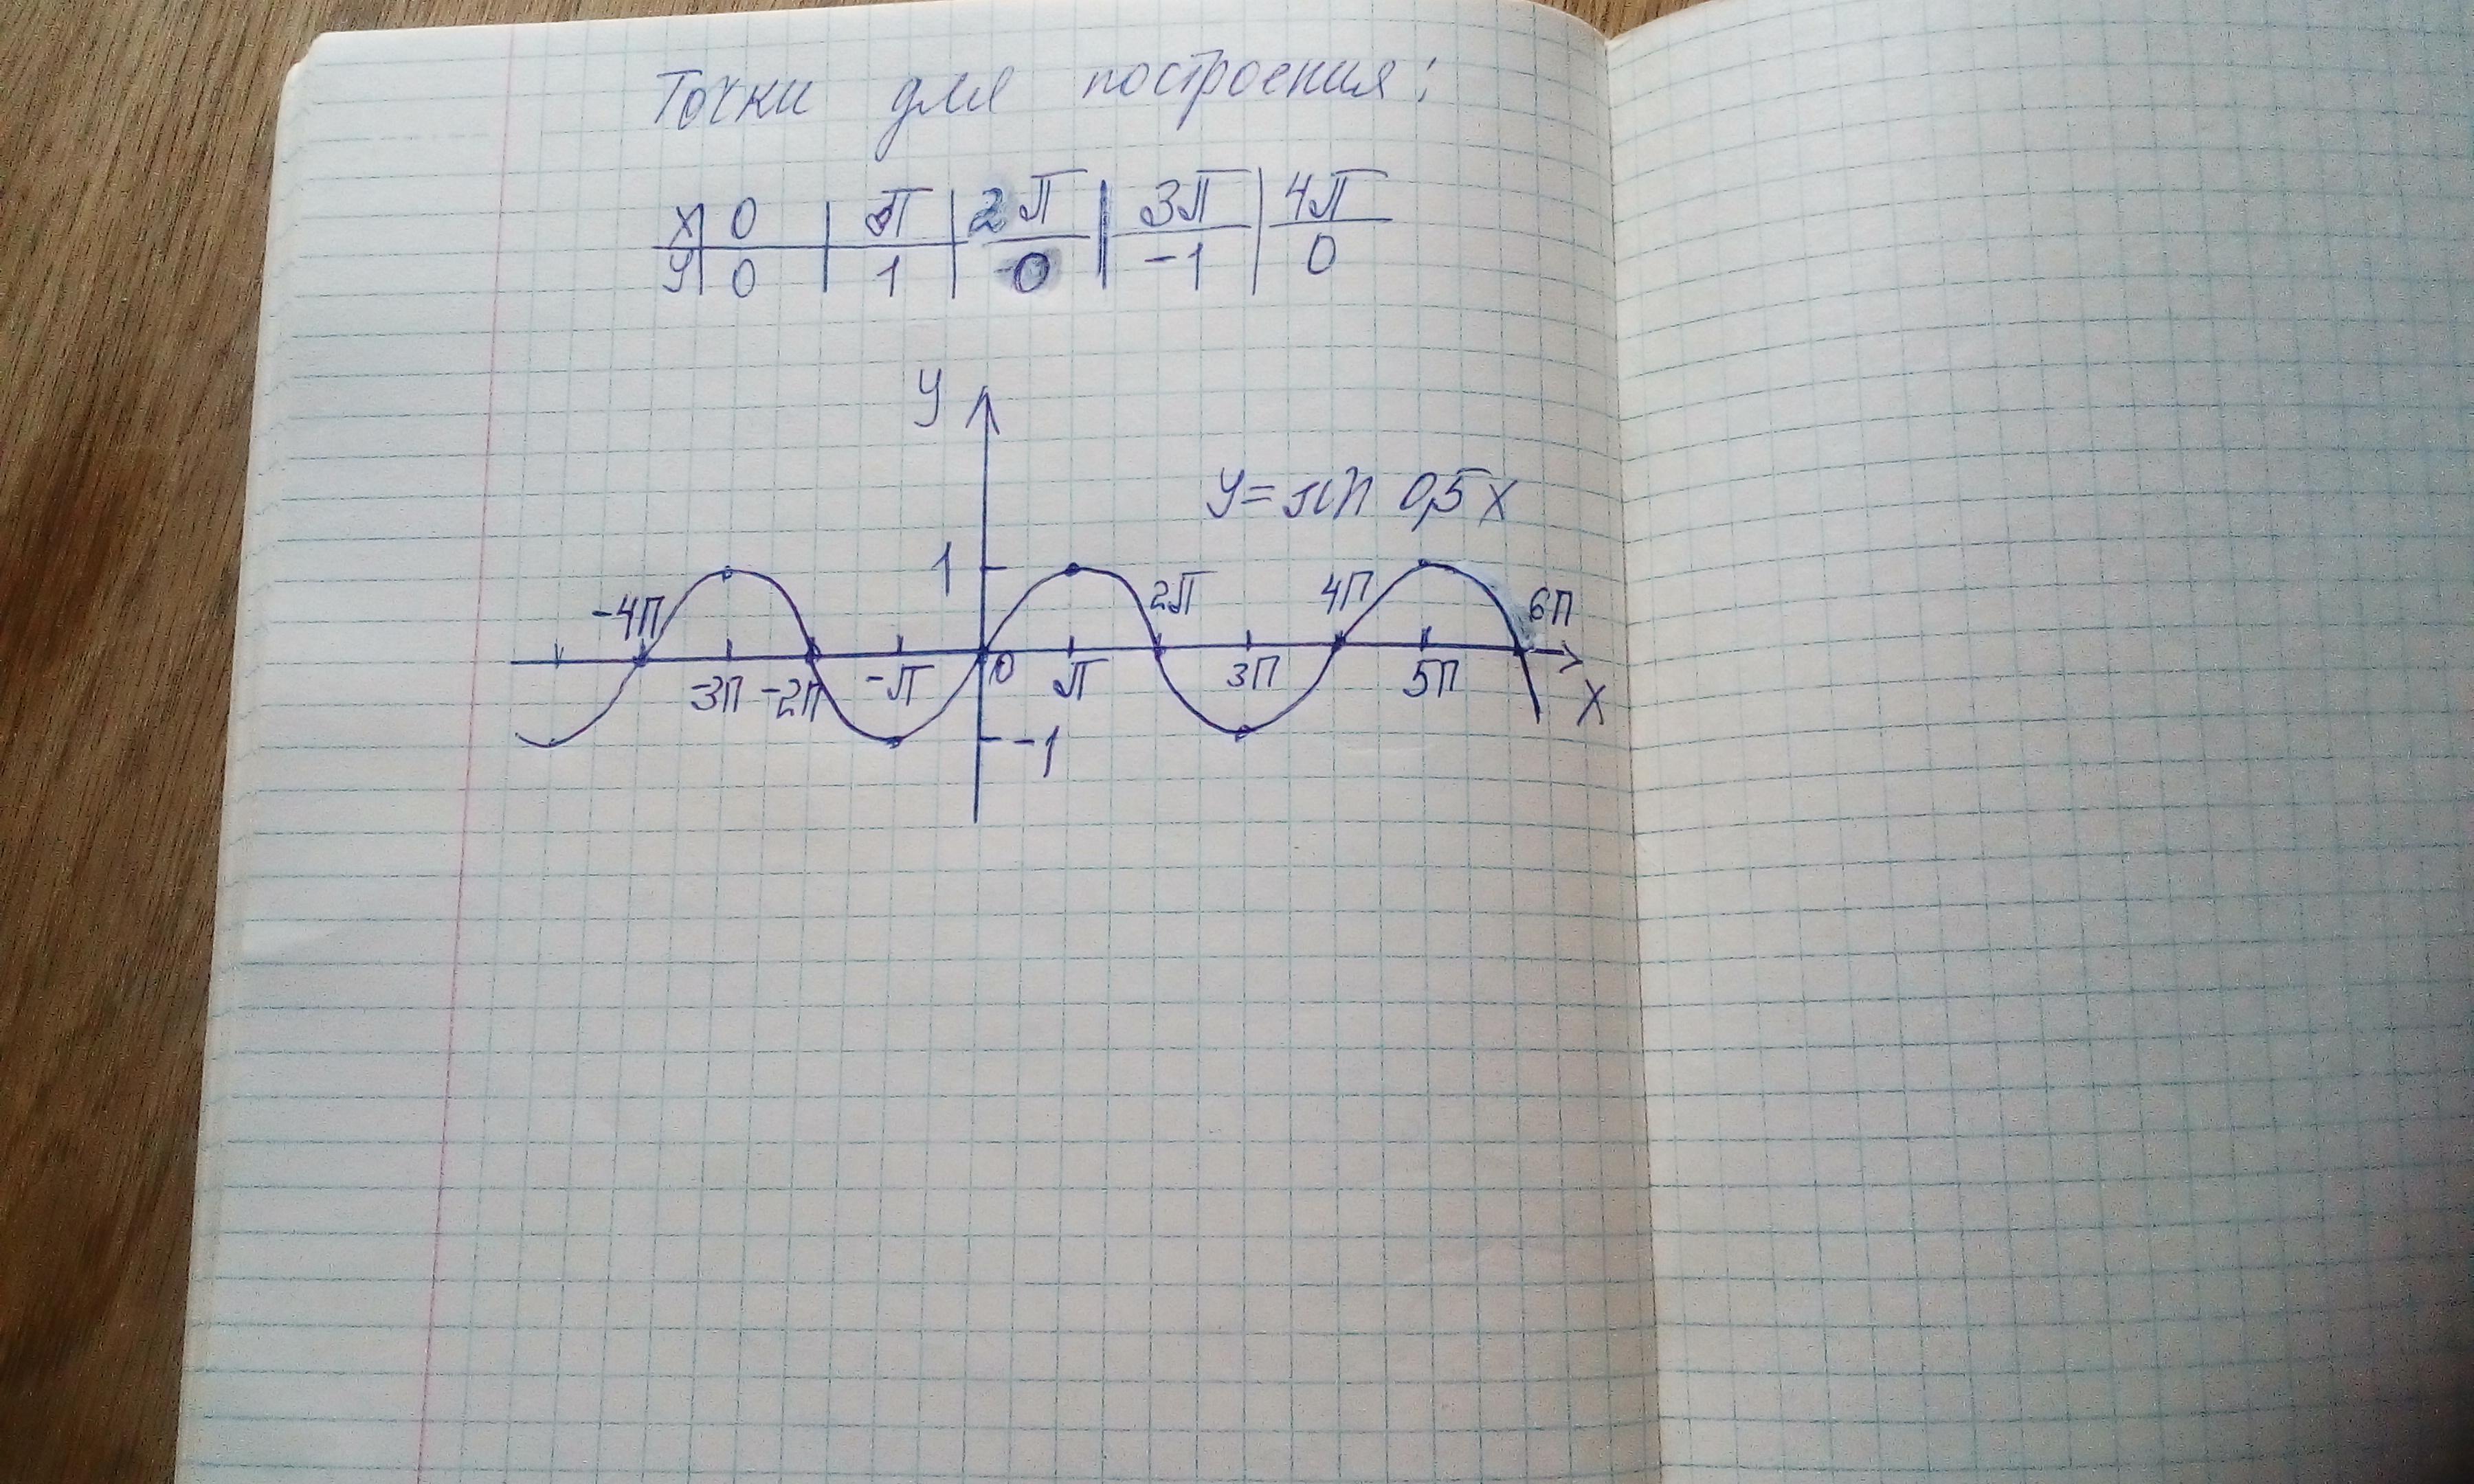 Точки для построения:
x 0 π 2π 3π 4π
y 0 1 0 -1 0
y
y = sin 0,5 x
1
-4π 2π 4π 6π
-3π -2π -π 0 π 3π 5π x
-1